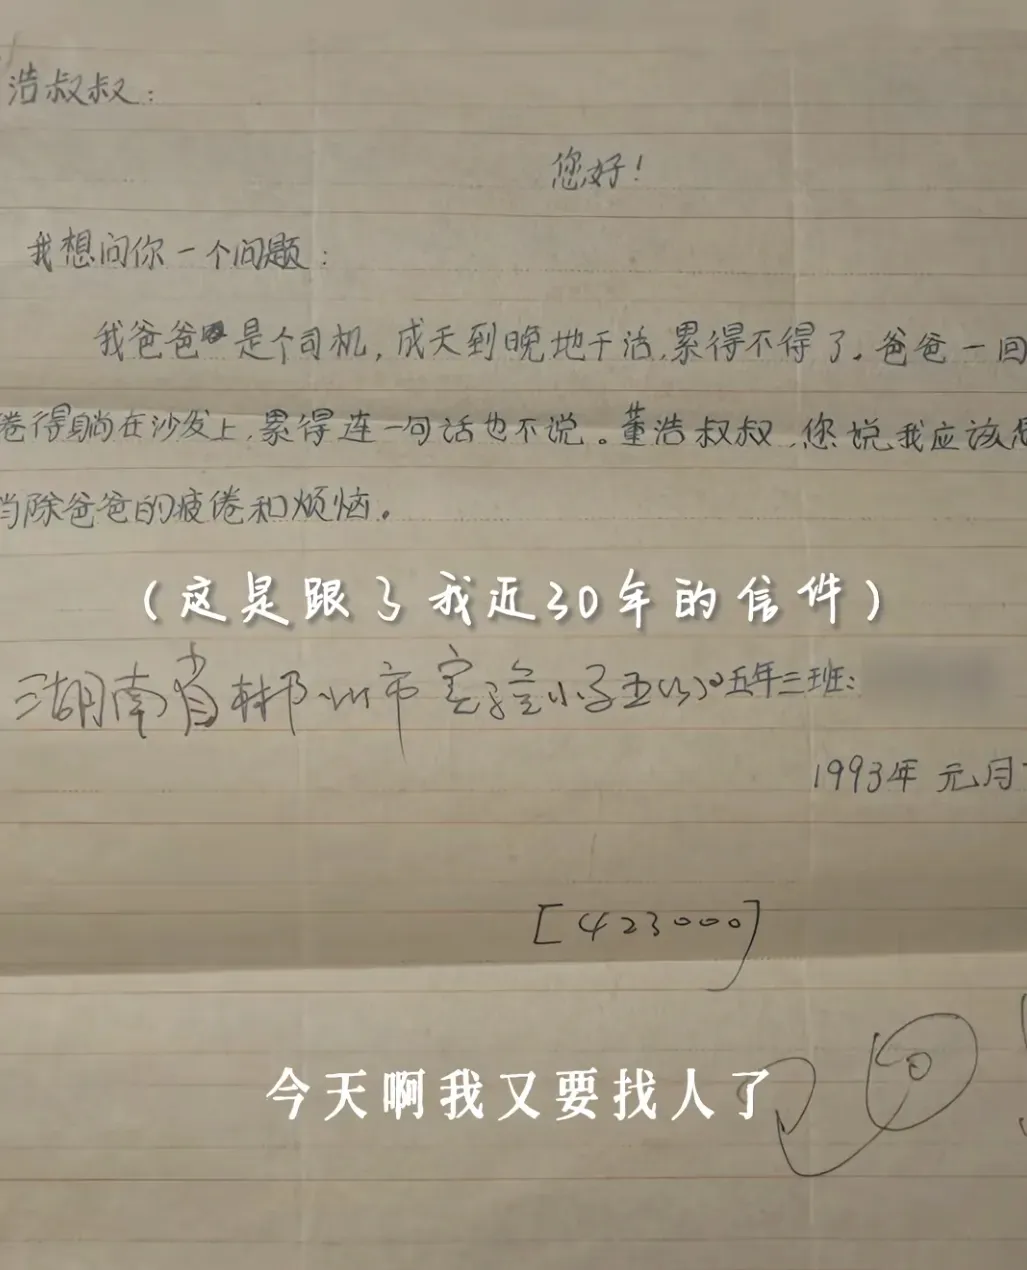 浩叔叔：
您好！
我想问你一个问题：
我爸爸是个司机，成天到晚地干活，累得不得了。爸爸一回
倦得躺在沙发上，累得连一句话也不说。董浩叔叔，您说我应该怎
消除爸爸的疲倦和烦恼。
（这是跟了我近30年的信件）
湖南省郴州市实验小学五（3）五年三班：
1993年元月
[423000]
今天啊我又要找人了